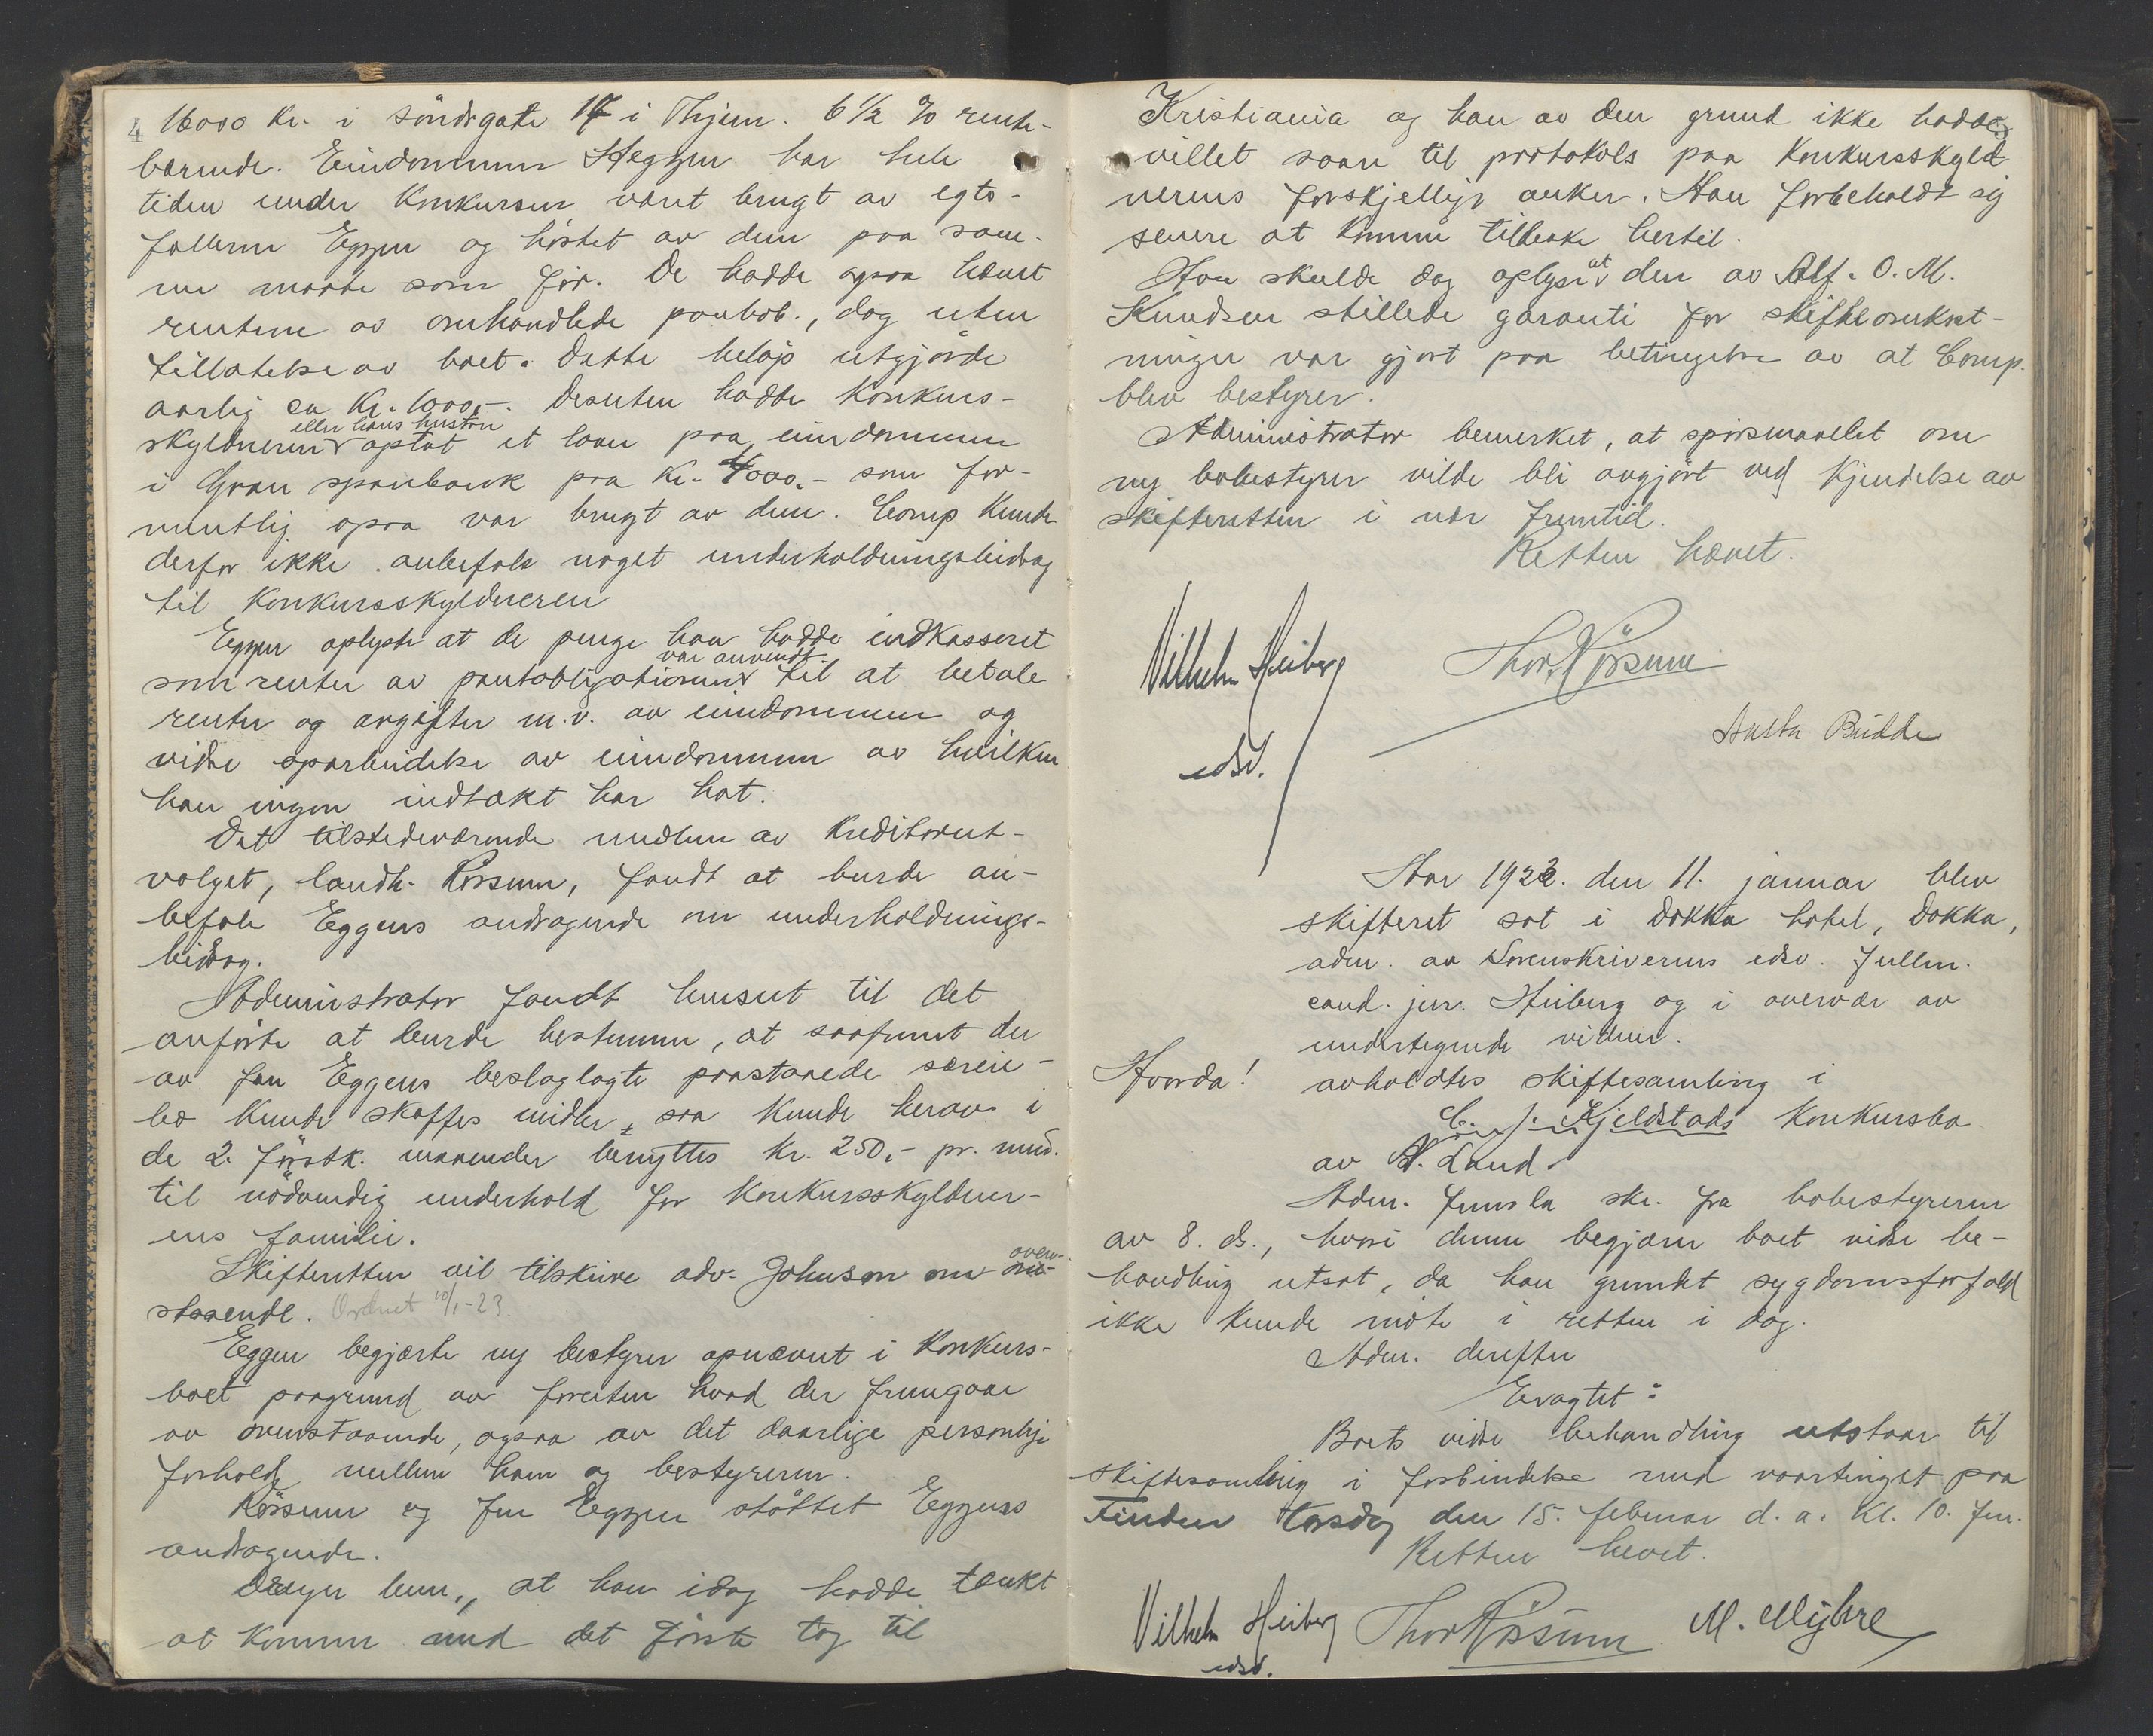 4 16000 kr. i söndregate 17 i Thjem. 6 1/2 % rente-
bærende. Eiendommen Heggen har hele
tiden under konkursen været brugt av egte-
fællerne Eggen og höstet av dem paa sam-
me maate som för. De hadde ogsaa hævet
rentene av omhandlede pantob., dog uten
tillatelse av boet. Dette belöp utgjorde
aarlig ca kr. 1000,-. Desuten hadde konkurs-
eller hans hustru
skyldneren optat et laan paa eiendommen
i Gran sparebank paa kr. 4000,- som for-
mentlig ogsaa var brugt av dem. Comp kunde
derfor ikke anbefale noget underholdningsbidrag
til konkursskyldneren
Eggen oplyste at de penge han hadde indkasseret
var anvendt
som renter av pantobligationen til at betale
renter og avgifter m.v. av eiendommen og
videre oparbeidelse av eiendommen av hvilken
han ingen indtækt har hat.
Det tilstedeværende medlem av kreditorut-
valget, landh. Rössum, fandt at burde an-
befale Eggens andragende om underholdnings-
bidrag.
Administrator fandt hensett til det
anförte at burde bestemme, at saafremt der
av fru Eggens beslaglagte paastaaede særeie-
bo kunde skaffes midler, saa kunde herav i
de 2 förstk. maaneder benyttes kr. 250,- pr. mnd.
til nödvendig underhold for konkursskyldner-
ens familie.
Skifteretten vil tilskrive adv. Johnson om oven-
staaende. Ordnet 10/1-23.
Eggen begjærte ny bestyrer opnævnt i konkurs-
boet paagrund av foruten hvad der fremgaar
av ovenstaaende, ogsaa av det daarlige personlige
forhold mellem ham og bestyreren.
Rössum og fru Eggen stöttet Eggens
andragende.
bem., at han idag hadde tænkt
at komme med det förste tog til
Kristiania og han av den grund ikke hadde
villet svare til protokols paa konkursskyld-
nerens forskjellige anker. Han forbeholdt sig
senere at komme tilbake hertil.
Han skulde dog oplyse at den av Alf. O. M.
Knudsen stillede garanti for skifteomkost-
ninger var gjort paa betingelse av at Comp.
blev bestyrer.
Administrator bemerket, at spörsmaalet om
ny bobestyrer vilde bli avgjört ved kjendelse av
skifteretten i nær fremtid.
Retten hævet.
Vilhelm Heiberg Thor Rössum
edsv.
Budde
Aar 1923. den 11. januar blev
skifteret sat i Dokka hotel, Dokka,
adm. av Sorenskriverens edsv. fullm.
cand. jur. Heiberg og i overvær av
undertegnede vidner.
Hvorda! avholdtes skiftesamling i
Kjeldstads konkursbo
av N. Land.
Adm. fremla skr. fra bobestyreren
av 8. ds., hvori denne begjærer boets videre be-
handling utsat, da han grundet sygdomsforfald
ikke kunde möte i retten i dag.
Adm. derefter
Eragtet:
Boets videre behandling utstaar til
skiftesamling i forbindelse med vaartinget paa
Finden torsdag den 15. februar d.a. kl. 10. fm.
Retten hævet.
Vilhelm Heiberg Thor Rössum M. Myhre
edsv.